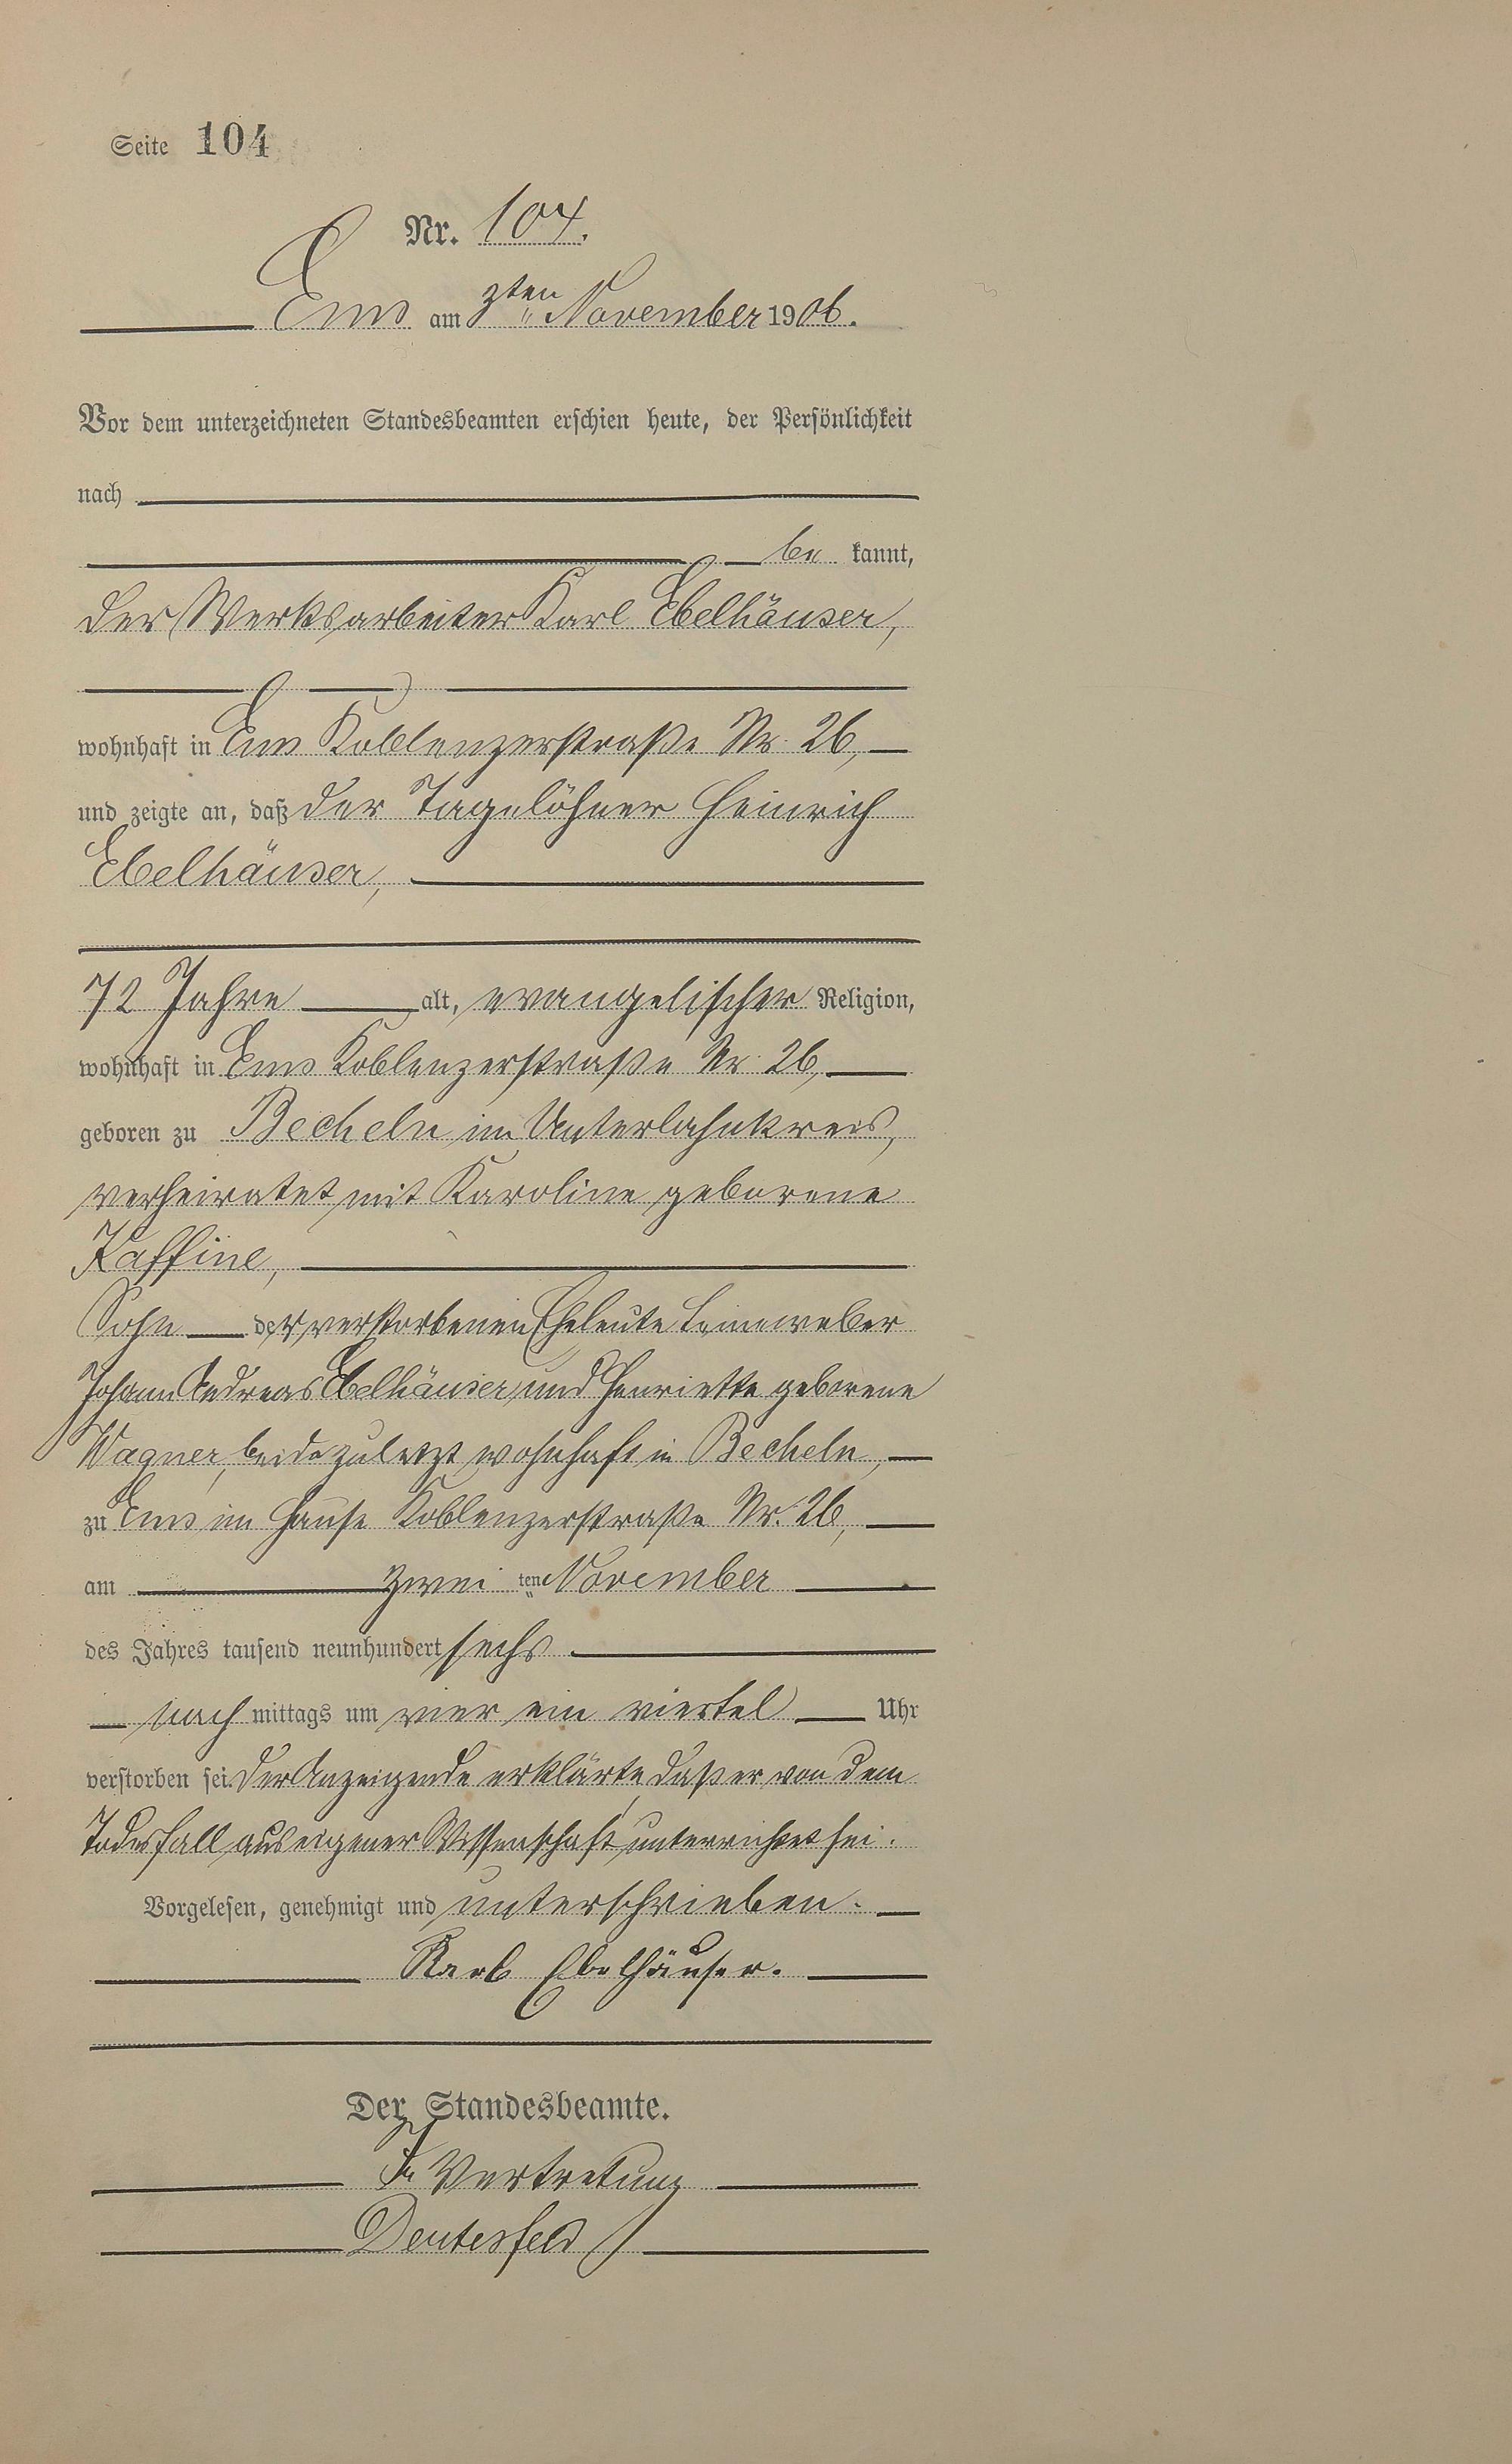 Seite 104
Nr. 104.
Ems am 3ten November 1906.
Vor dem unterzeichneten Standesbeamten erschien heute, der Persönlichkeit
nach
be kannt,
der Werksarbeiter Karl Ebelhäuser,
wohnhaft in Ems Koblenzerstraße Nr. 26,
und zeigte an, daß der Tagelöhner Heinrich
Ebelhäuser,
72 Jahre alt, evangelischer Religion,
wohnhaft in Ems Koblenzerstraße Nr. 26,
geboren zu Becheln im Unterlahnkreis,
verheiratet mit Karoline geborene
Kaffine,
Sohn der verstorbenen Eheleute Leineweber
Johann Andreas Ebelhäuser und Henriette geborene
Wagner, beide zuletzt wohnhaft in Becheln,
zu Ems im Hause Koblenzerstraße Nr. 26,
am zwei ten November
des Jahres tausend neunhundert sechs
nach mittags um vier ein viertel Uhr
verstorben sei. Der Anzeigende erklärte, daß er von dem
Todesfall aus eigener Wissenschaft unterrichtet sei.
Vorgelesen, genehmigt und unterschrieben.
Karl Ebelhäuser.
Der Standesbeamte.
In Vertretung
Deutesfeld